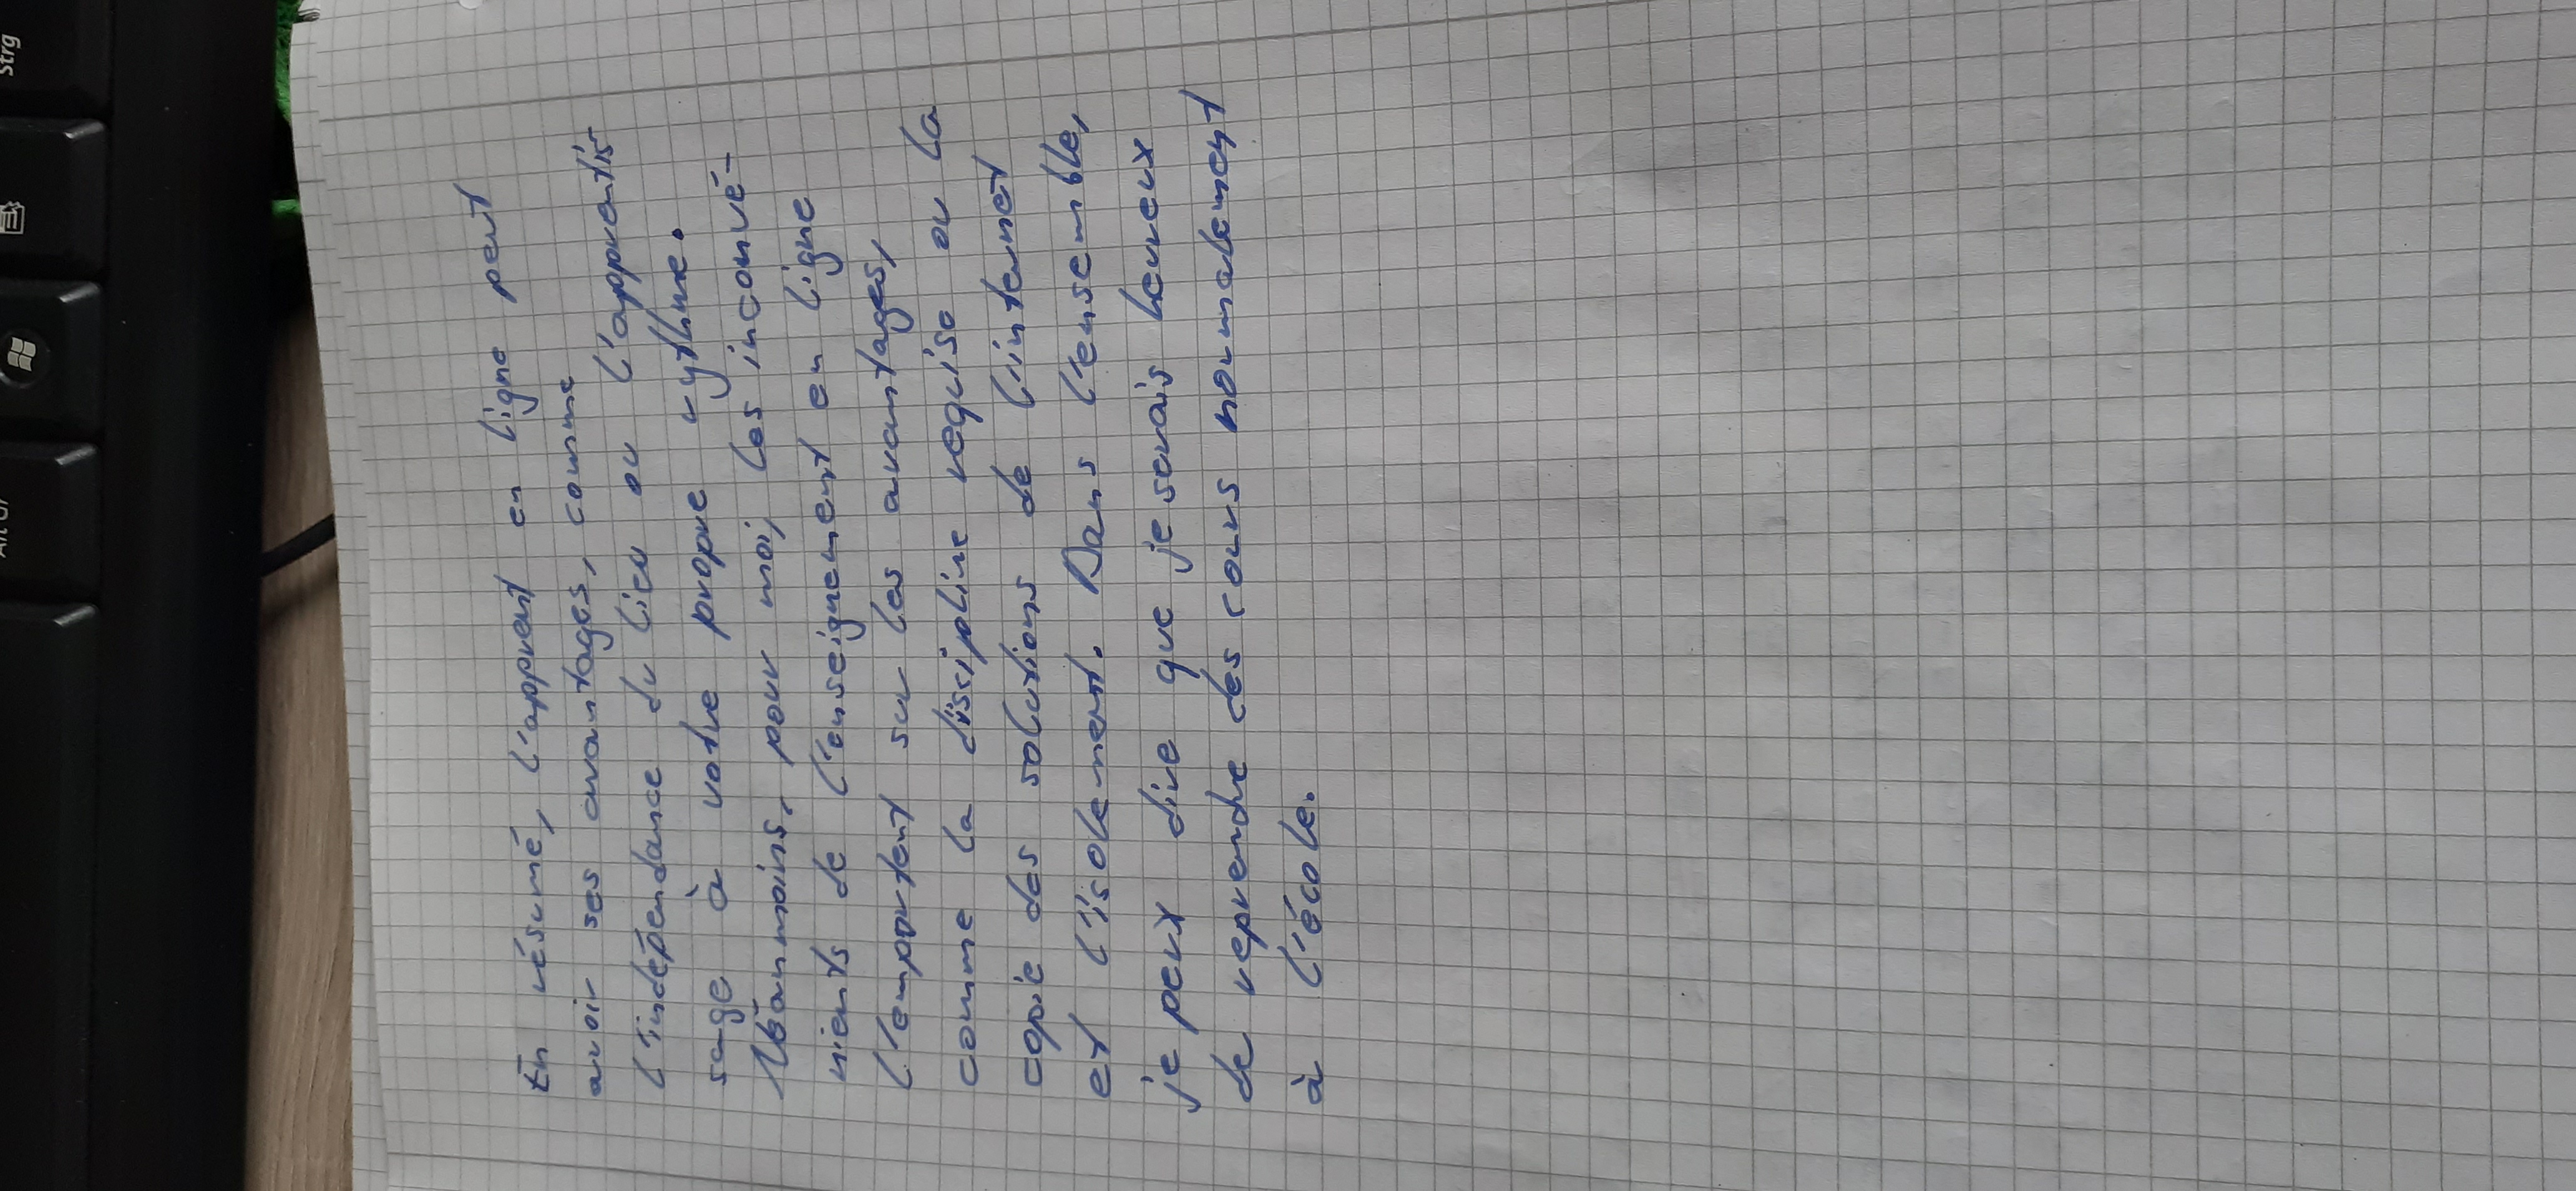 En résumé, l'apprent en ligne peut
avoir ses avantages, comme
l'indépendance du lieu ou l'apprentis-
sage à votre propre rythme.
Néanmoins, pour moi, les inconvé-
nients de l'enseignement en ligne
l'emportent sur les avantages,
comme la discipline requise ou la
copie des solutions de l'internet
et l'isolement. Dans l'ensemble,
je peux dire que je serais heureux
de reprendre des cours normalement
à l'école.
Strg
Alt Gr